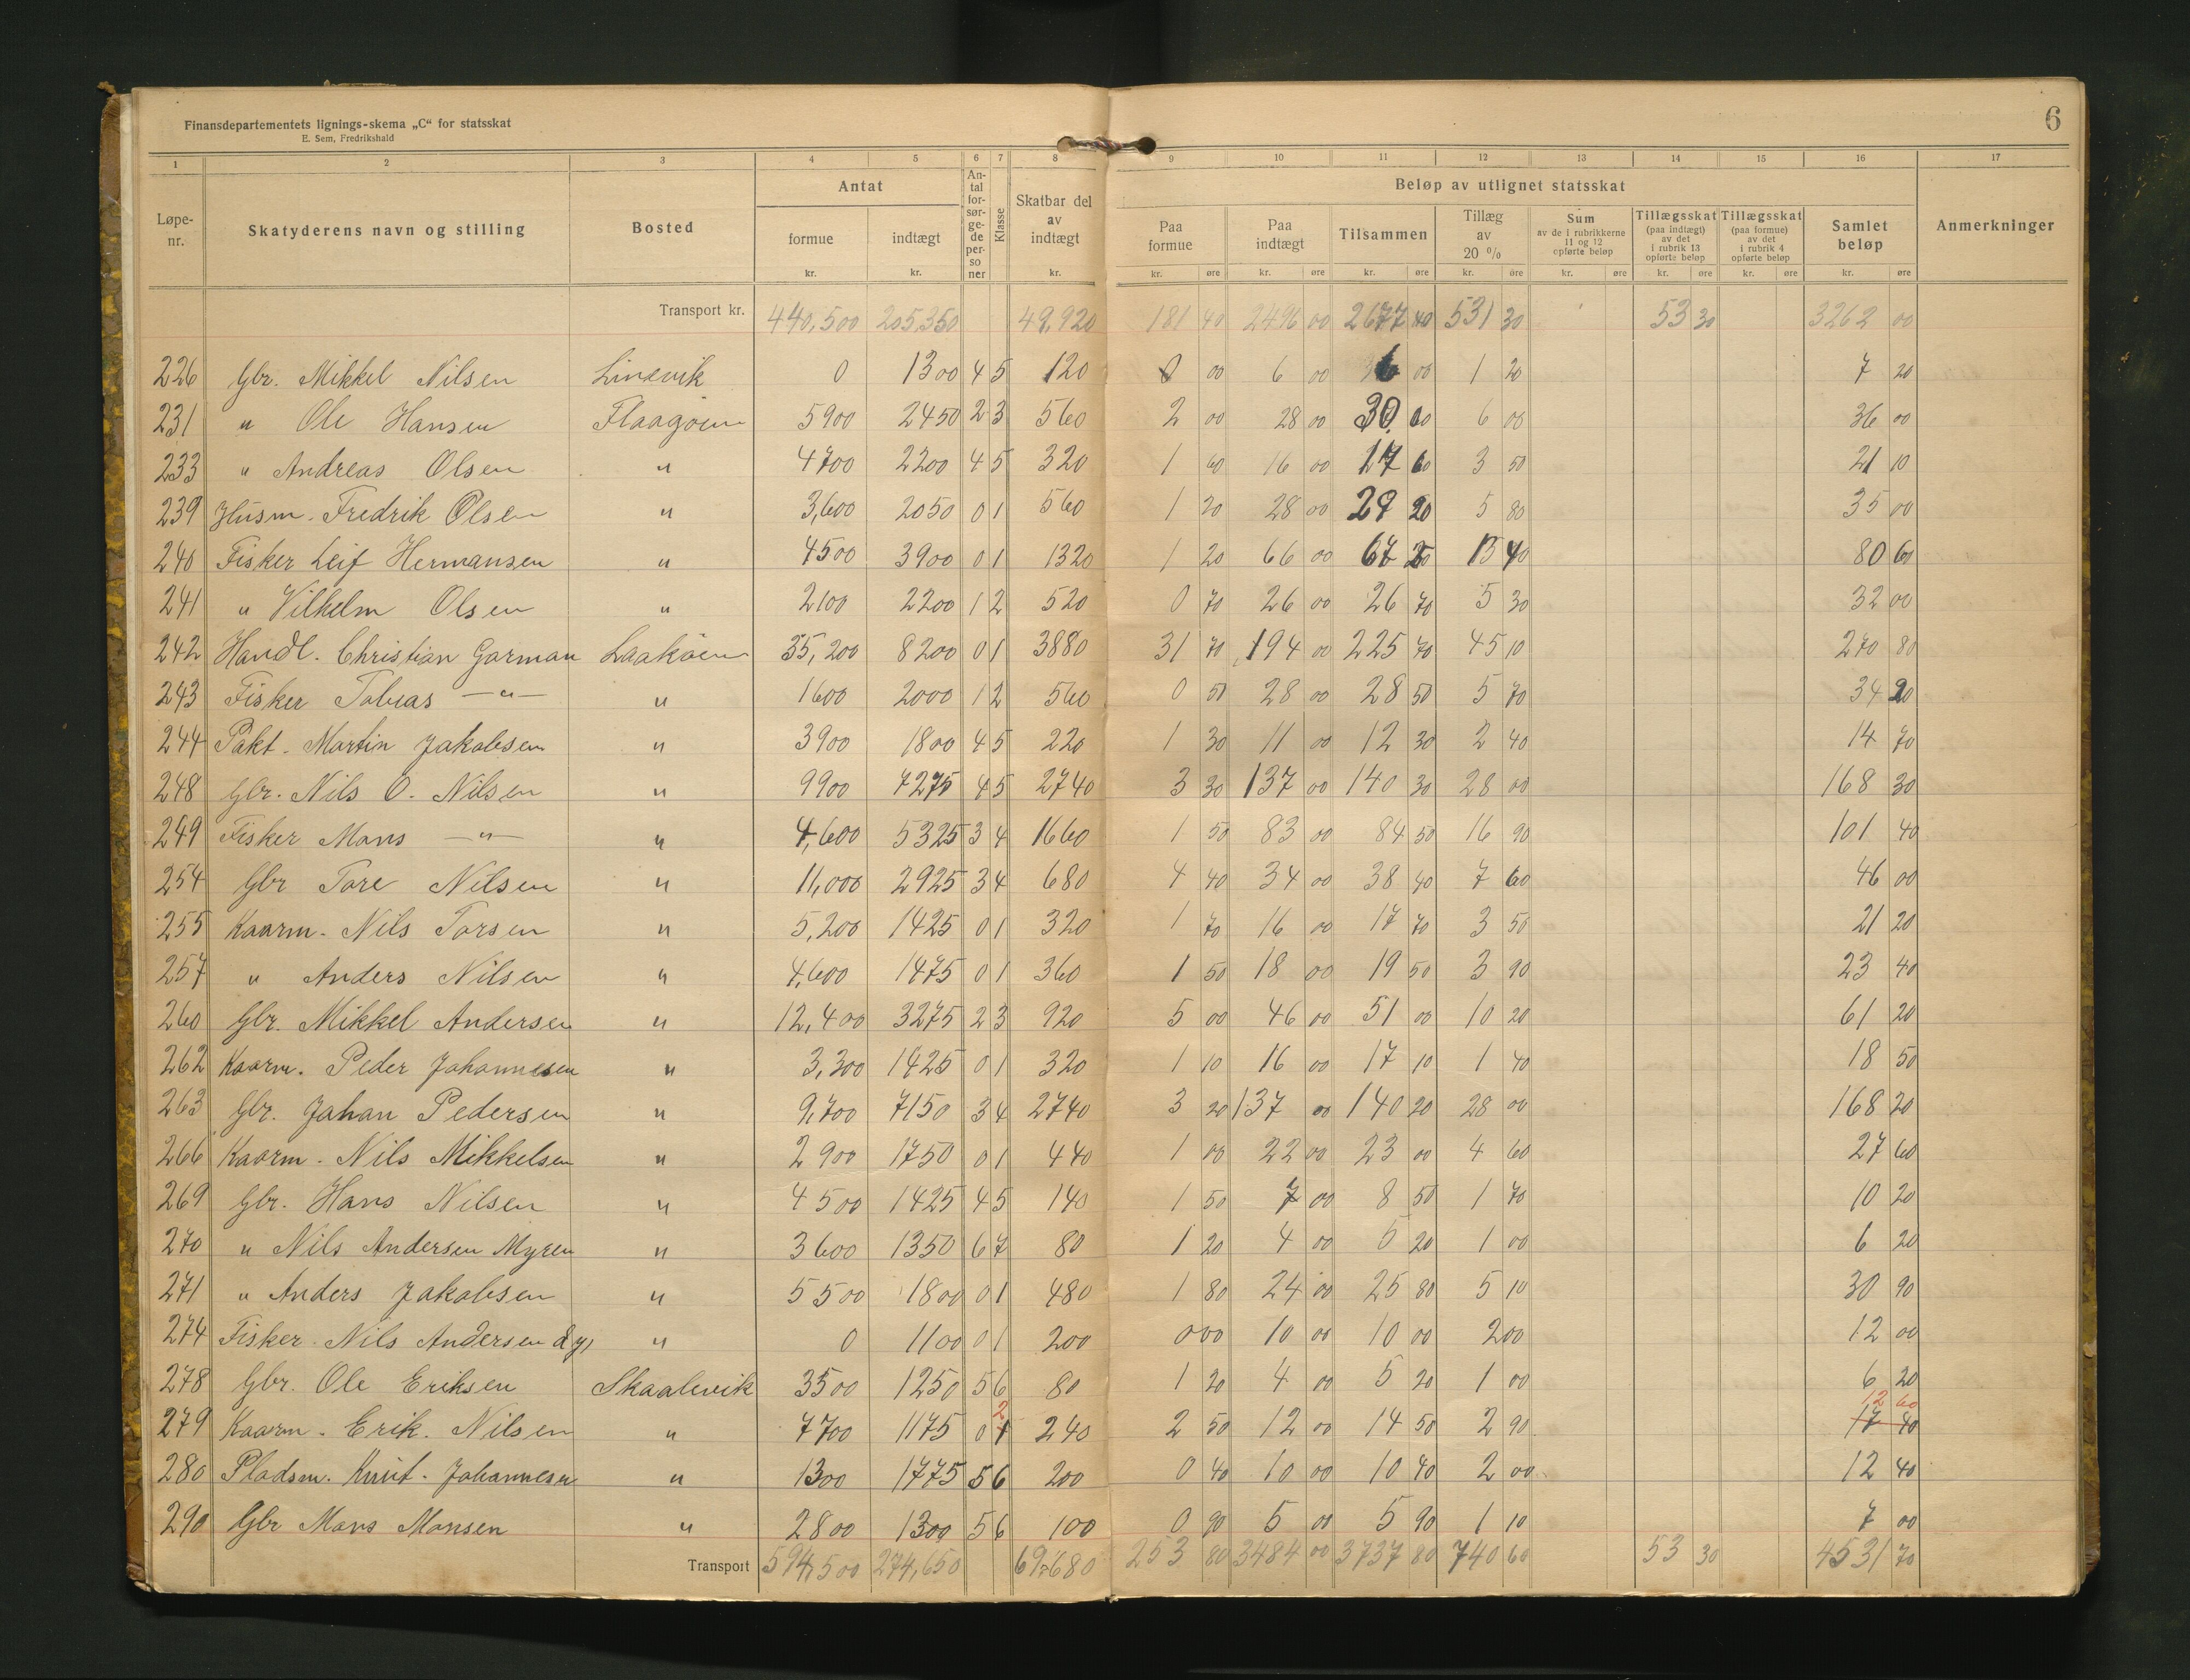 Finansdepartementets lignings-skema „C“ for statsskat
E. Sem, Fredrikshald
6
1 2 3 4 5 6 7 8 9 10 11 12 13 14 15 16 17
Løpe-nr. Skatyderens navn og stilling Bosted Antat formue kr. indtægt kr. Antal forsørgede personer Klasse Skatbar del av indtægt kr. Beløp av utlignet statsskat Paa formue kr. øre Paa indtægt kr. øre Tilsammen kr. øre Tillæg av 20 % kr. øre Sum av de i rubrikkerne 11 og 12 opførte beløp kr. øre Tillægsskat (paa indtægt) av det i rubrik 13 opførte beløp kr. øre Tillægsskat (paa formue) av det i rubrik 4 opførte beløp kr. øre Samlet beløp kr. øre Anmerkninger
Transport kr. 440,500 205,350 49,920 181 40 2496 00 2677 40 531 30 53 30 3262 00
226 Gbr. Mikkel Nilsen Linevik 0 1300 4 5 120 0 00 6 00 6 00 1 20 7 20
231 " Ole Hansen Flaagøen 5900 2450 2 3 560 2 00 28 00 30 00 6 00 36 00
233 " Andreas Olsen " 4700 2200 4 5 320 1 60 16 00 17 60 3 50 21 10
239 Husm. Fredrik Olsen " 3,600 2050 0 1 560 1 20 28 00 29 20 5 80 35 00
240 Fisker Leif Hermansen " 4500 3900 0 1 1320 1 20 66 00 67 20 13 40 80 60
241 " Vilhelm Olsen " 2100 2200 1 2 520 0 70 26 00 26 70 5 30 32 00
242 Handl. Christian Garman Laakøen 35,200 8200 0 1 3880 31 70 194 00 225 70 45 10 270 80
243 Fisker Tobias —"— " 1600 2000 1 2 560 0 50 28 00 28 50 5 70 34 20
244 Pakt. Martin Jakobsen " 3900 1800 4 5 220 1 30 11 00 12 30 2 40 14 70
248 Gbr. Nils O. Nilsen " 9900 7275 4 5 2740 3 30 137 00 140 30 28 00 168 30
249 Fisker Mons —"— " 4,600 5325 3 4 1660 1 50 83 00 84 50 16 90 101 40
254 Gbr Tore Nilsen " 11,000 2925 3 4 680 4 40 34 00 38 40 7 60 46 00
255 Kaarm. Nils Torsen " 5,200 1425 0 1 320 1 70 16 00 17 70 3 50 21 20
257 " Anders Nilsen " 4,600 1475 0 1 360 1 50 18 00 19 50 3 90 23 40
260 Gbr. Mikkel Andersen " 12,400 3275 2 3 920 5 00 46 00 51 00 10 20 61 20
262 Kaarm. Peder Johannesen " 3,300 1425 0 1 320 1 10 16 00 17 10 1 40 18 50
263 Gbr. Johan Pedersen " 9,700 7150 3 4 2740 3 20 137 00 140 20 28 00 168 20
266 Kaarm. Nils Mikkelsen " 2900 1750 0 1 440 1 00 22 00 23 00 4 60 27 60
269 Gbr. Hans Nilsen " 4500 1425 4 5 140 1 50 7 00 8 50 1 70 10 20
270 " Nils Andersen Myren " 3600 1350 6 7 80 1 20 4 00 5 20 1 00 6 20
271 " Anders Jakobsen " 5500 1800 0 1 480 1 80 24 00 25 80 5 10 30 90
274 Fisker Nils Andersen dy, " 0 1100 0 1 200 0 00 10 00 10 00 2 00 12 00
278 Gbr. Ole Eriksen Skaalevik 3500 1250 5 6 80 1 20 4 00 5 20 1 00 6 20
2 12 60
279 Kaarm. Erik. Nilsen " 7700 1175 0 1 240 2 50 12 00 14 50 2 90 17 40
280 Pladsm. Knut. Johannesen " 1300 1775 5 6 200 0 40 10 00 10 40 2 00 12 40
290 Gbr Mons Monsen " 2800 1300 5 6 100 0 90 5 00 5 90 1 10 7 00
Transport 594,500 274,650 69,680 253 80 3484 00 3737 80 740 60 53 30 4531 70